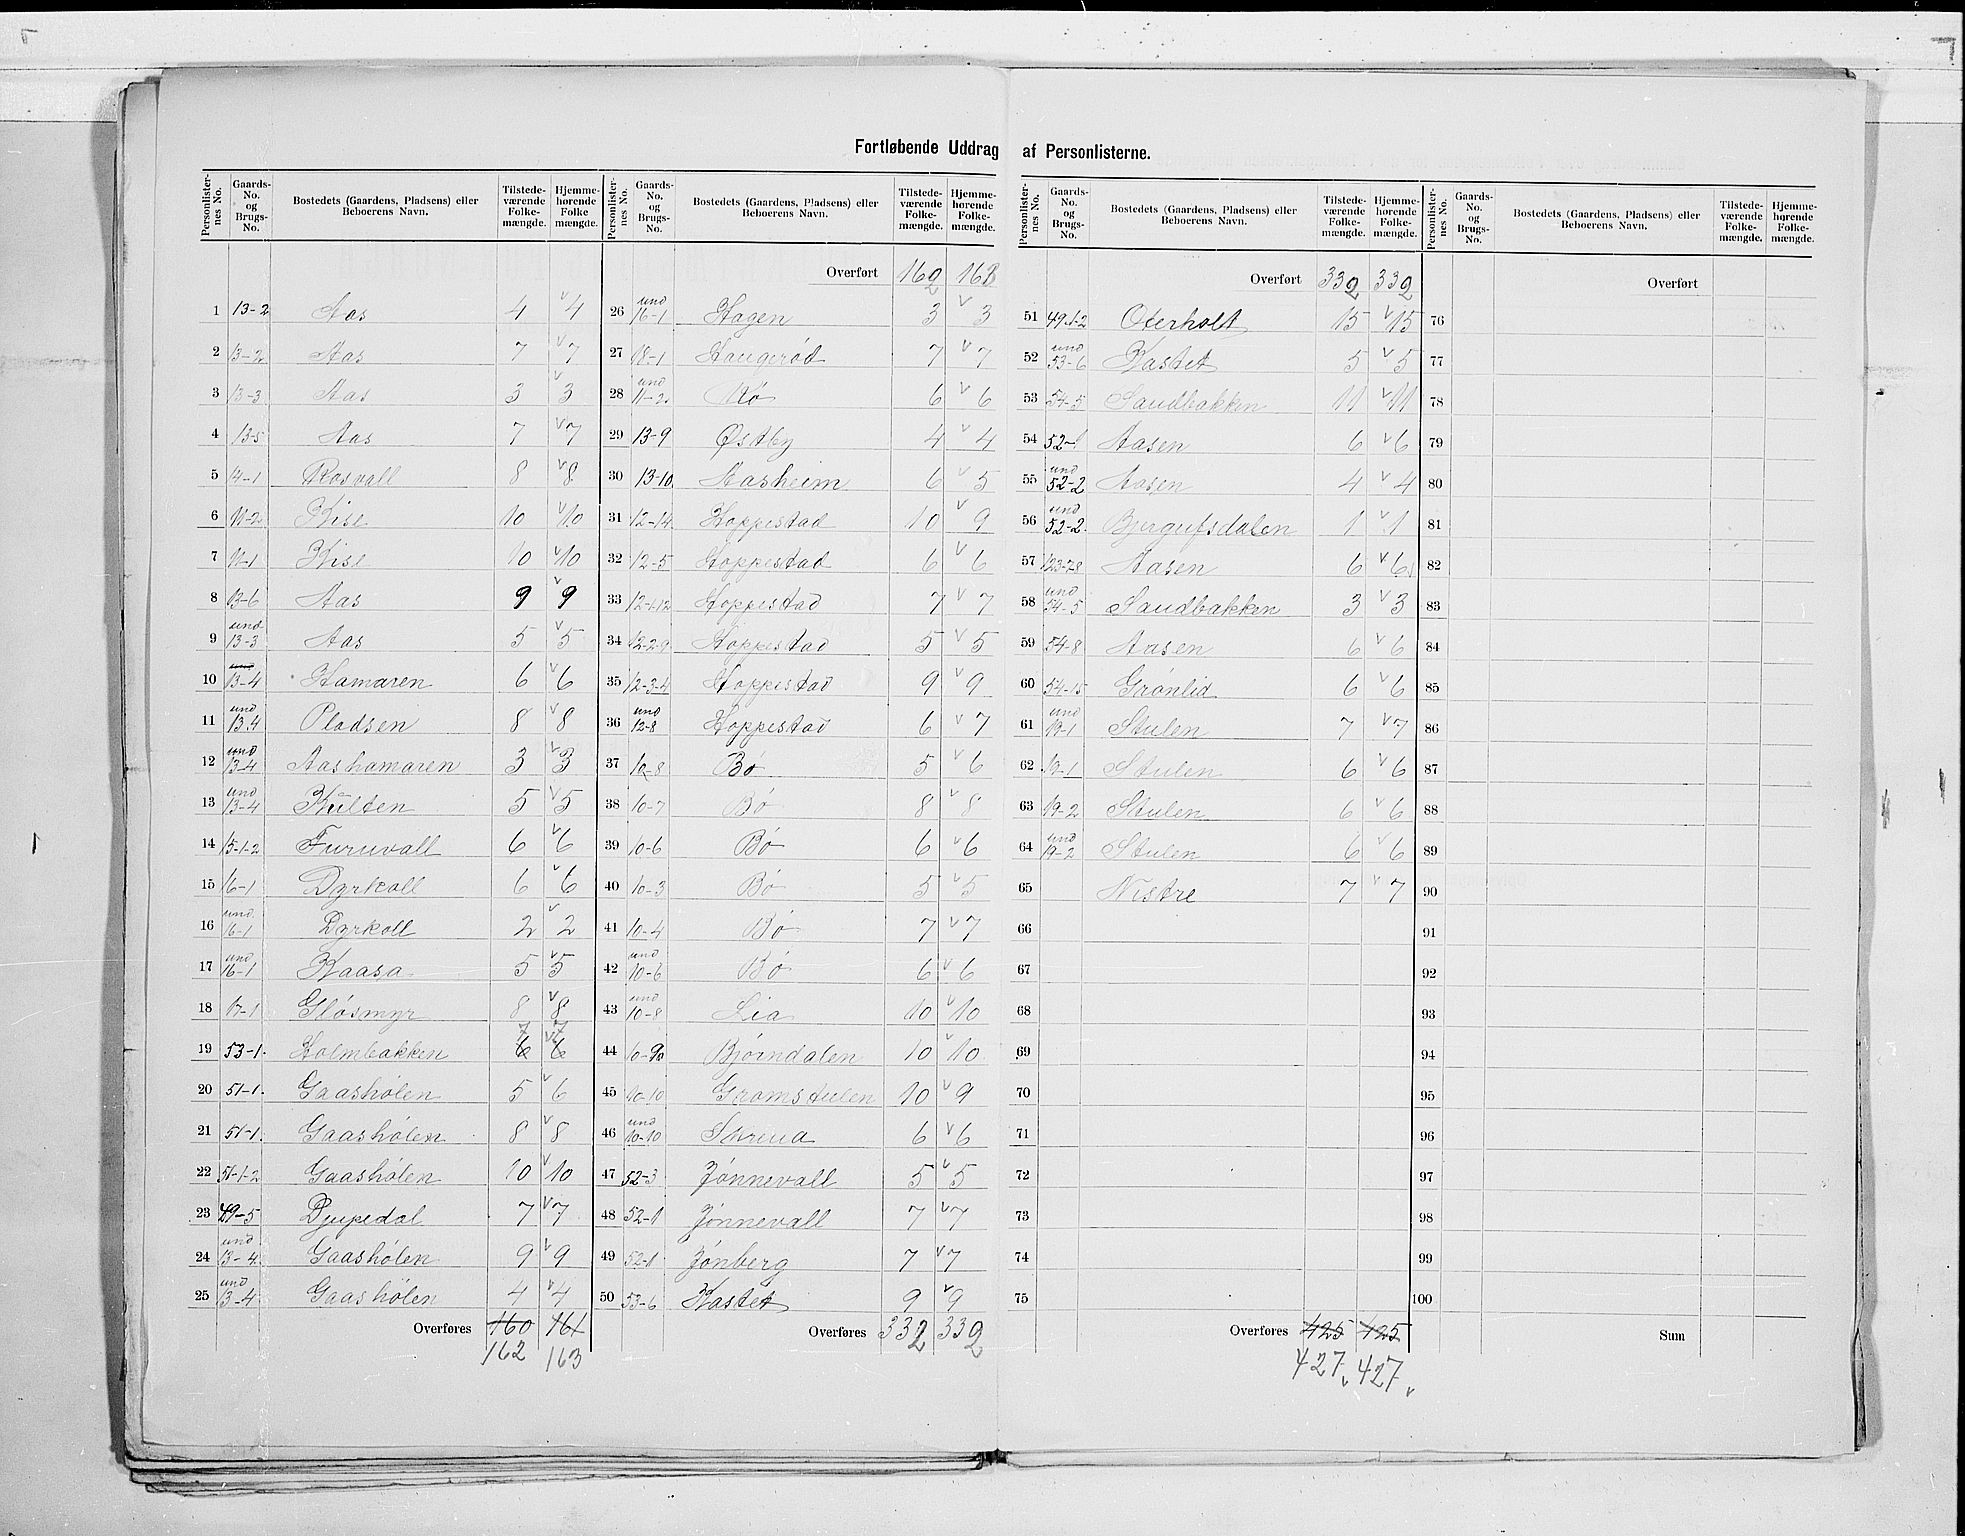 Fortløbende Uddrag af Personlisterne.
Personlister-nes No. Gaards-No. og Brugs-No. Bostedets (Gaardens, Pladsens) eller Beboerens Navn. Tilstede-værende Folke-mængde. Hjemme-hørende Folke mængde.
1 13-2 Aas 4 v 4
2 13-2 Aas 7 v 7
3 13-3 Aas 3 v 3
4 13-5 Aas 7 v 7
5 14-1 Rosvall 8 v 8
6 11-2 Kise 10 v 10
7 11-1 Kise 10 v 10
8 13-6 Aas 9 v 9
9 und 13-3 Aas 5 v 5
10 13-4 Hamaren 6 v 6
11 und 13.4 Pladsen 8 v 8
12 und 13-4 Aashamaren 3 v 3
13 und 13-4 Kulten 5 v 5
14 15-1-2 Furuvall 6 v 6
15 16-1 Dyrkoll 6 v 6
16 und. 16-1 Dyrkoll 2 v 2
17 und 16-1 Kaasa 5 v 5
18 17-1 Gløsmyr 8 v 8
19 53-1. Holmbakken 6 7 v 6 7
20 51-1. Gaashølen 5 v 6
21 51-1. Gaashølen 8 v 8
22 51-1-2 Gaashølen 10 v 10
23 49-5 Djupedal 7 v 7
24 und 13-4 Gaashølen 9 v 9
25 und 13-4 Gaashølen 4 v 4
Overføres 160 161
162 163
Personlister-nes No. Gaards-No. og Brugs-No. Bostedets (Gaardens, Pladsens) eller Beboerens Navn. Tilstede-værende Folke-mængde. Hjemme-hørende Folke-mængde.
Overført 162 163
26 und 16-1 Hagen 3 v 3
27 18-1 Haugerød 7 v 7
28 und 11-2. Bø 6 v 6
29 13-9 Østby 4 v 4
30 13-10. Aasheim 6 v 5
31 12-14. Hoppestad 10 v 9
32 12-5 Hoppestad 6 v 6
33 12-1-12 Hoppestad 7 v 7
34 12-2-9 Hoppestad 5 v 5
35 12-3-4 Hoppestad 9 v 9
36 und 12-8 Hoppestad 6 v 7
37 10-8 Bø 5 v 6
38 10-7 Bø 8 v 8
39 10-6 Bø 6 v 6
40 10-3 Bø 5 v 5
41 10-4 Bø 7 v 7
42 und 10-6 Bø 6 v 6
43 und 10-8 Lia 10 v 10
44 10-9 Bjørndalen 10 v 10
45 10-10 Gromstulen 10 v 9
46 und 10-10 6 v 6
47 52-3 Jønnevall 5 v 5
48 52-1 Jønnevall 7 v 7
49 52-1 Jønberg 7 v 7
50 53-6 Kastet 9 v 9
Overføres 332 332
Personlister-nes No. Gaards-No. og Brugs-No. Bostedets (Gaardens, Pladsens) eller Beboerens Navn. Tilstede-værende Folke-mængde. Hjemme-hørende Folke-mængde.
Overført 332 332
51 49.1-2 Oterholt 15 v 15
52 und 53-6 Kastet 5 v 5
53 54-5 Sandbakken 11 v 11
54 52-1 Aasen 6 v 6
55 und 52-2 Aasen 4 v 4
56 und 52-2. Bjergufsdalen 1 v 1
57 Aasen 6 v 6
58 und 54-5 Sandbakken 3 v 3
59 54-8 Aasen 6 v 6
60 54-15 Grønlid 6 v 6
61 und 19-1 Stulen 7 v 7
62 19-1 Stulen 6 v 6
63 19-2 Stulen 6 v 6
64 und 19-2 Stulen 6 v 6
65 Nistre 7 v 7
66
67
68
69
70
71
72
73
74
75
Overføres 425 425
427 v 427 v
Personlister-nes No. Gaards-No. og Brugs-No. Bostedets (Gaardens, Pladsens) eller Beboerens Navn. Tilstede-værende Folke-mængde. Hjemme-hørende Folke-mængde.
Overført
76
77
78
79
80
81
82
83
84
85
86
87
88
89
90
91
92
93
94
95
96
97
98
99
100
Sum